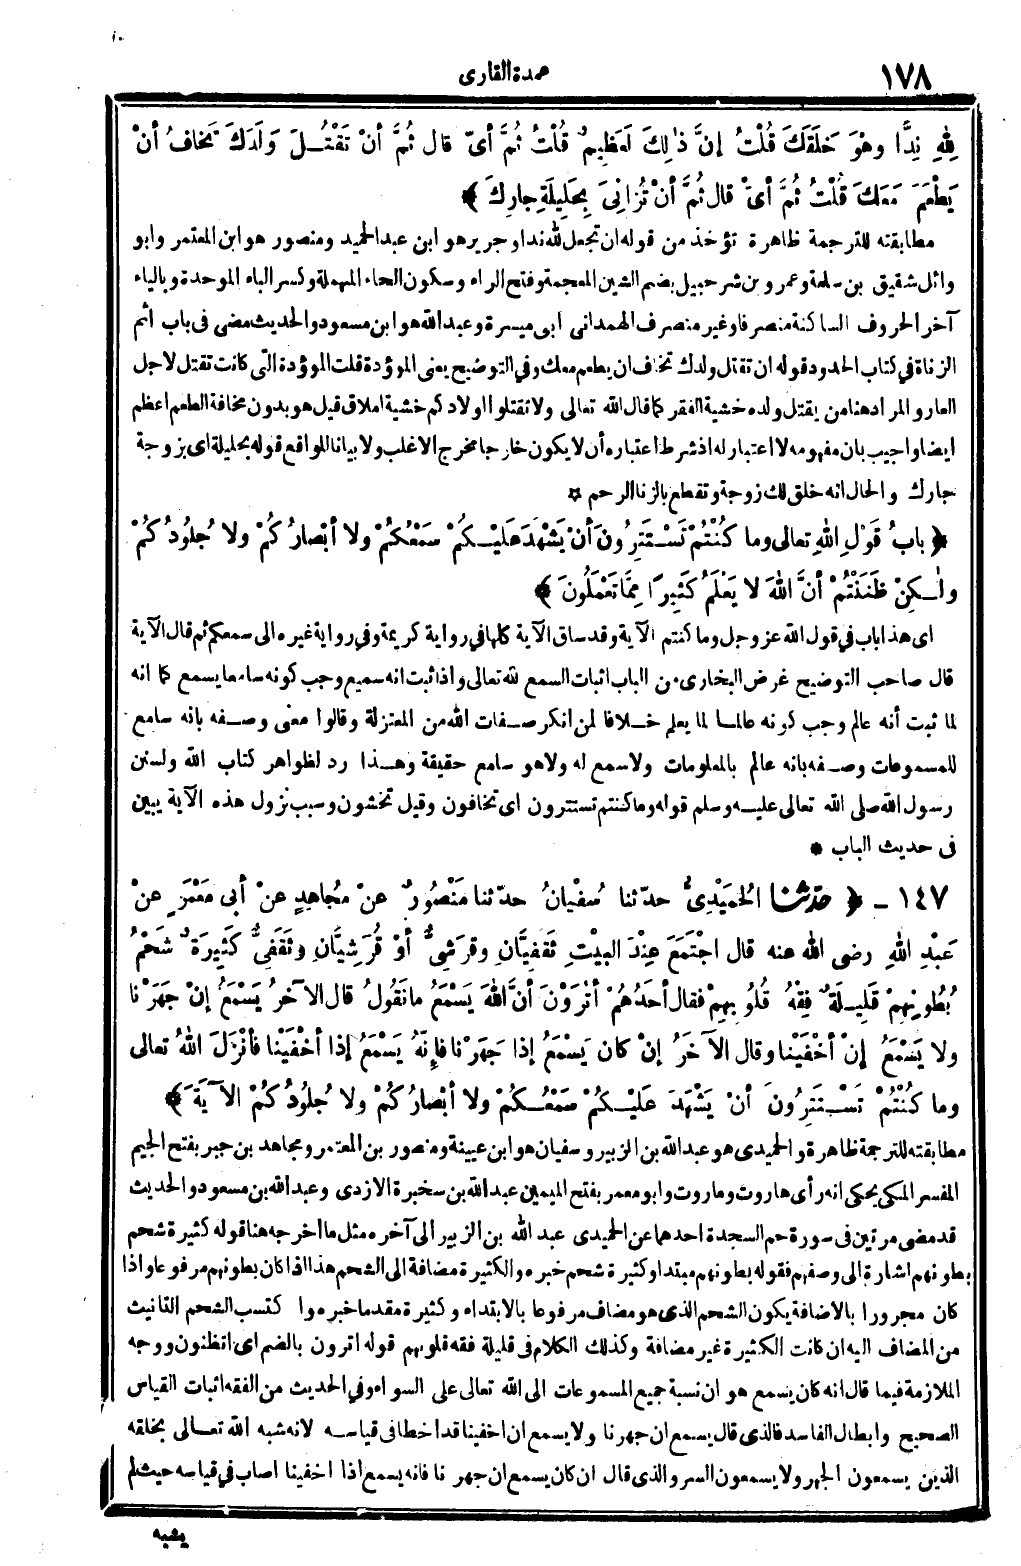 ١٧٨
عمدة القارى
لِلهِ نِدًّا وهْوَ خَلَقَكَ قُلْتُ إنَّ ذٰلِكَ لَعَظِيمٌ قُلْتُ ثُمَّ أىّ قال ثُمَّ أنْ تَقْتُلَ وَلَدَكَ تَخافُ أنْ
يَطْعَمَ مَعَكَ قُلْتُ ثُمَّ أىّ قال ثُمَّ أنْ تُزَانِىَ بِحَلِيلَةِ جارِكَ ﴾
مطابقته للترجمة ظاهرة تؤخذ من قوله ان تجعل لله ندا وجرير هو ابن عبد الحميد ومنصور هو ابن المعتمر وابو
وائل شقيق بن سلمة وعمرو بن شرحبيل بضم الشين المعجمة وفتح الراء وسكون الحاء المهملة وكسر الباء الموحدة وبالياء
آخر الحروف الساكنة منصرفا وغير منصرف الهمدانى ابى ميسرة وعبدالله هو ابن مسعود والحديث مضى فى باب اثم
الزناة في كتاب الحدود قوله ان تقتل ولدك تخاف ان يطعم معك وفي التوضيح يعنى الموؤدة قلت الموؤدة التى كانت تقتل لاجل
العار والمراد هنا من يقتل ولده خشية الفقر كما قال الله تعالى ولا تقتلوا اولادكم خشية املاق قيل هو بدون مخافة الطعم اعظم
ايضا واجيب بان مفهومه لا اعتبار له اذ شرط اعتباره أن لا يكون خارجا مخرج الاغلب ولا بيانا للواقع قوله بحليلة اى بزوجة
جارك والحال انه خلق لك زوجة وتقطع بالزنا الرحم ☆
﴿ بابُ قَوْلِ اللهِ تعالى وما كُنْتُمْ تَسْتَتِرُونَ أنْ يَشْهَدَ عَلَيْكُمْ سَمْعُكُمْ ولا أبْصارُكُمْ ولا جُلُودُكُمْ
ولٰكِنْ ظَنَنْتُمْ أنَّ اللهَ لا يَعْلَمُ كَثِيرًا مِمَّا تَعْمَلُونَ ﴾
اى هذا باب في قول الله عز وجل وما كنتم الآية وقد ساق الآية كلها في رواية كريمة وفي رواية غيره الى سمعكم ثم قال الآية
قال صاحب التوضيح غرض البخارى من الباب اثبات السمع لله تعالى واذا ثبت انه سميع وجب كونه سامعا يسمع كما انه
لما ثبت أنه عالم وجب كونه عالما لما يعلم خلافا لمن انكر صفات الله من المعتزلة وقالوا معنى وصفه بانه سامع
للمسموعات وصفه بانه عالم بالمعلومات ولا سمع له ولا هو سامع حقيقة وهذا رد لظواهر كتاب الله ولسنن
رسول الله صلى الله تعالى عليه وسلم قوله وما كنتم تستترون اى تخافون وقيل تخشون وسبب نزول هذه الآية يبين
فى حديث الباب *
١٤٧ - ﴿ حدّثنا الحُمَيْدِىُّ حدّثنا سُفْيانُ حدّثنا مَنْصُورٌ عنْ مُجاهِدٍ عنْ أبى مَعْمَرٍ عنْ
عَبْدِ اللهِ رضى الله عنه قال اجْتَمَعَ عِنْدَ البَيْتِ ثَقَفِيَّانِ وقُرَشِىٌّ أوْ قُرَشِيَّانِ وثَقَفِىٌّ كَثِيرَةٌ شَحْمُ
بُطُونِهِمْ قَلِيلَةٌ فِقْهُ قُلُوبِهِمْ فقال أحَدُهُمْ أتُرَوْنَ أنَّ اللهَ يَسْمَعُ ما نَقُولُ قال الآخرُ يَسْمَعُ إنْ جَهَرْنا
ولا يَسْمَعُ إنْ أخْفَيْنا وقال الآخَرُ إنْ كان يَسْمَعُ إذا جَهَرْنا فإنَّهُ يَسْمَعُ إذا أخْفَيْنا فأنْزَلَ اللهُ تعالى
وما كُنْتُمْ تَسْتَتِرُونَ أنْ يَشْهَدَ عَلَيْكُمْ سَمْعُكُمْ ولا أبْصارُكُمْ ولا جُلُودُكُمْ الآيَةَ ﴾
مطابقته للترجمة ظاهرة والحميدى هو عبدالله بن الزبير وسفيان هو ابن عيينة ومنصور بن المعتمر ومجاهد بن جبر بفتح الجيم
المفسر المكى يحكى انه رأى هاروت وماروت وابو معمر بفتح الميمين عبدالله بن سخبرة الازدى وعبدالله بن مسعود والحديث
قد مضى مرتين فى سورة حم السجدة احدهما عن الحميدى عبد الله بن الزبير الى آخره مثل ما اخرجه هنا قوله كثيرة شحم
بطونهم اشارة الى وصفهم فقوله بطونهم مبتدا وكثيرة شحم خبره والكثيرة مضافة الى الشحم هذا اذا كان بطونهم مرفوعا واذا
كان مجرورا بالاضافة يكون الشحم الذى هو مضاف مرفوعا بالابتداء وكثيرة مقدما خبره وا كتسب الشحم التانيث
من المضاف اليه ان كانت الكثيرة غير مضافة وكذلك الكلام فى قليلة فقه قلوبهم قوله اترون بالضم اى اتظنون ووجه
الملازمة فيما قال انه كان يسمع هو ان نسبة جميع المسموعات الى الله تعالى على السواء وفي الحديث من الفقه اثبات القياس
الصحيح وابطال الفاسد فالذى قال يسمع ان جهرنا ولا يسمع ان اخفينا قد اخطا فى قياسه لانه شبه الله تعالى بخلقه
الذين يسمعون الجهر ولا يسمعون السر والذى قال ان كان يسمع ان جهرنا فانه يسمع اذا اخفينا اصاب في قياسه حيث لم
يشبه